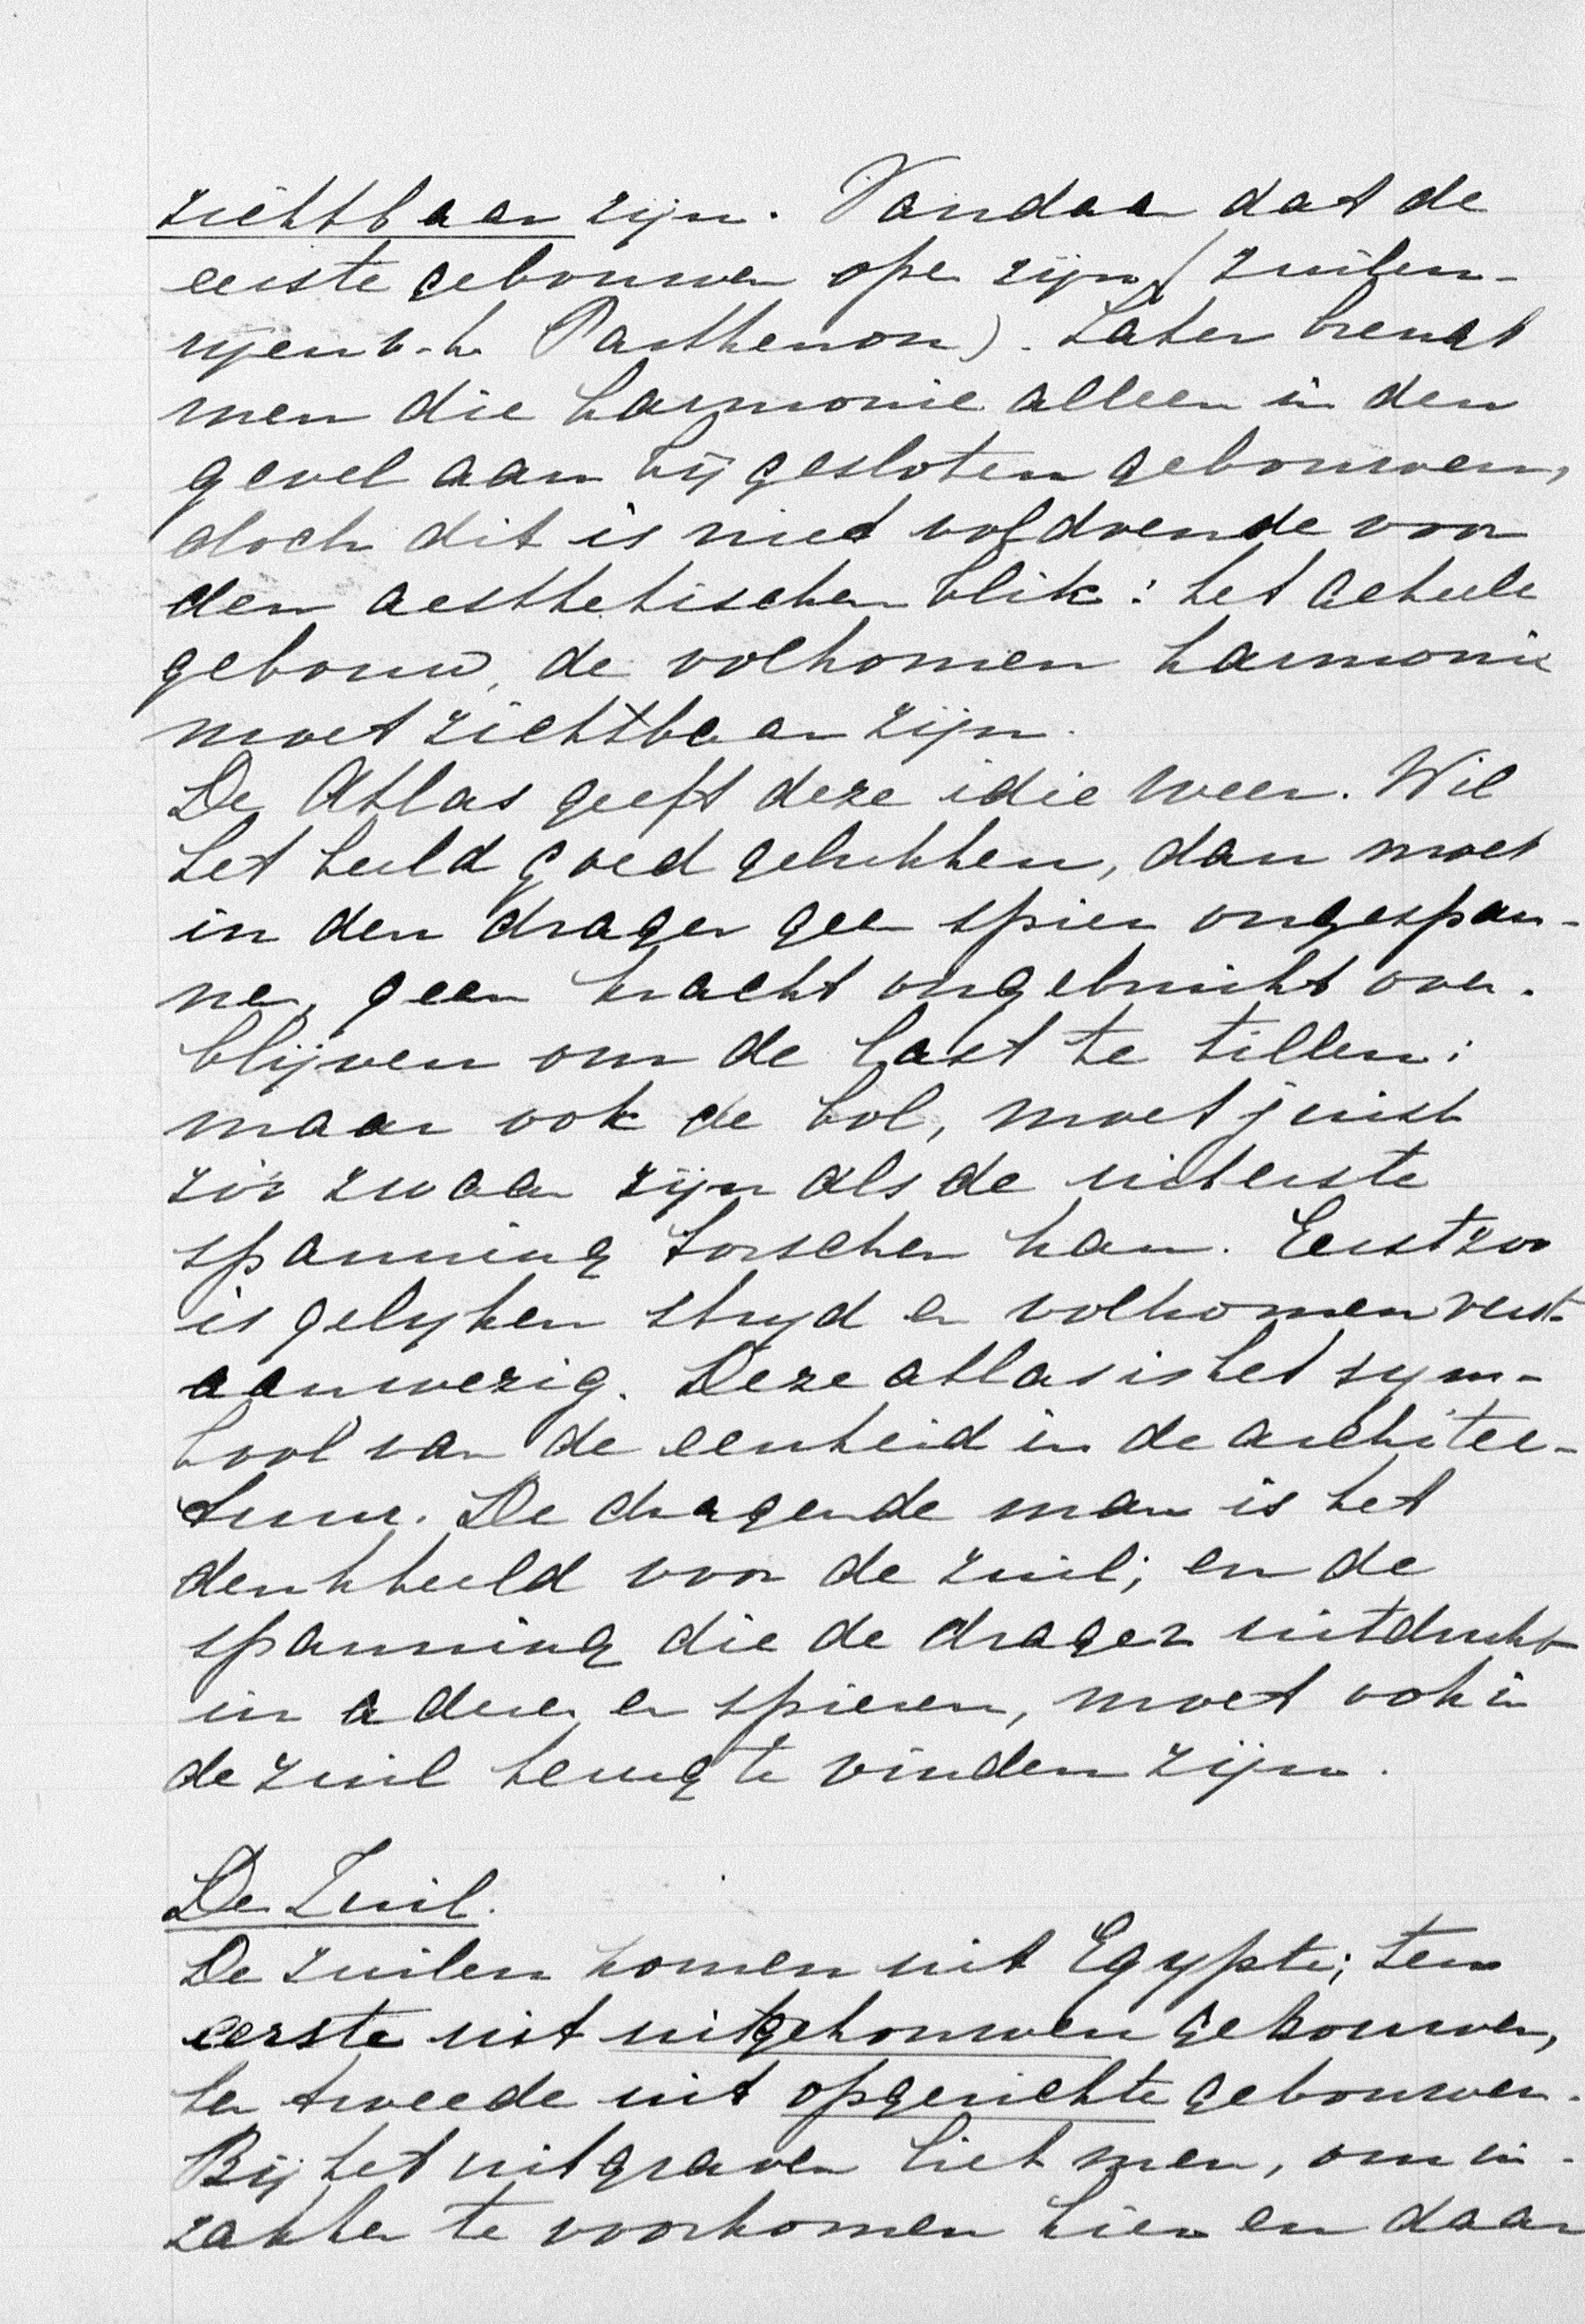 zichtbaar zijn. Vandaar dat de
eerste gebouwen open zijn (zuilen-
rijen b.h. Parthenon). Later brengt
men die harmonie alleen in den
gevel aan bij gesloten gebouwen,
doch dit is niet voldoende voor
den aesthetischen blik: het geheele
gebouw, de volkomen harmonie
moet zichtbaar zijn.
De Atlas geeft deze idie weer. Wil
het beeld goed gelukken, dan moet
in den drager geen spier ongespan-
nen, geen kracht ongebruikt over-
blijven om de last te tillen;
maar ook de bol, moet juist
zóó zwaar zijn als de uiterste
spanning torschen kan. Eerst zoo
is gelyken stryd en volkomen rust
aanwezig. Deze atlas is het sym-
bool van de eenheid in de architec-
tuur. De dragende man is het
denkbeeld voor de zuil; en de
spanning die de drager uitdrukt
in aderen en spieren, moet ook in
de zuil terug te vinden zijn.
De Zuil.
De zuilen komen uit Egypte; ten
eerste uit uitgehouwen gebouwen,
ten tweede uit opgerichte gebouwen.
Bij het uitgraven liet men, om in-
zakken te voorkomen hier en daar